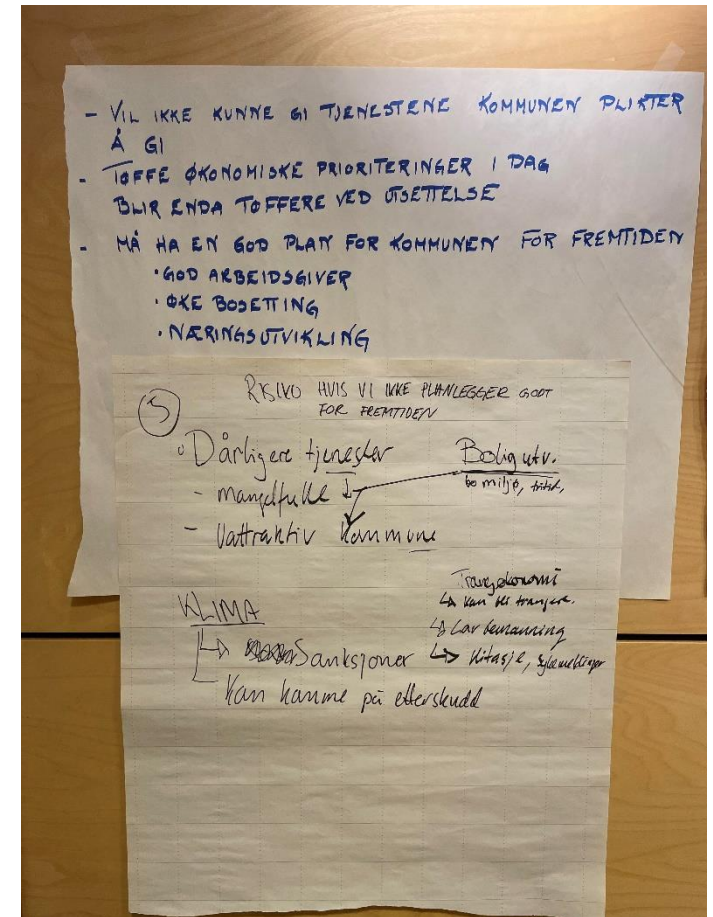 - VIL IKKE KUNNE GI TJENESTENE KOMMUNEN PLIKTER
Å GI
- TØFFE ØKONOMISKE PRIORITERINGER I DAG
BLIR ENDA TØFFERE VED UTSETTELSE
- MÅ HA EN GOD PLAN FOR KOMMUNEN FOR FREMTIDEN
• GOD ARBEIDSGIVER
• ØKE BOSETTING
• NÆRINGSUTVIKLING
5
RISIKO HVIS VI IKKE PLANLEGGER GODT
FOR FREMTIDEN
Dårligere tjenester
- mangelfulle ↓
- Uattraktiv kommune
Bolig utv.
bo miljø, fritid,
Trang økonomi
↳ Kan bli trangere.
↳ Lav bemanning
↳ slitasje, sykemeldinger
KLIMA
↳ Sanksjoner
Kan komme på etterskudd